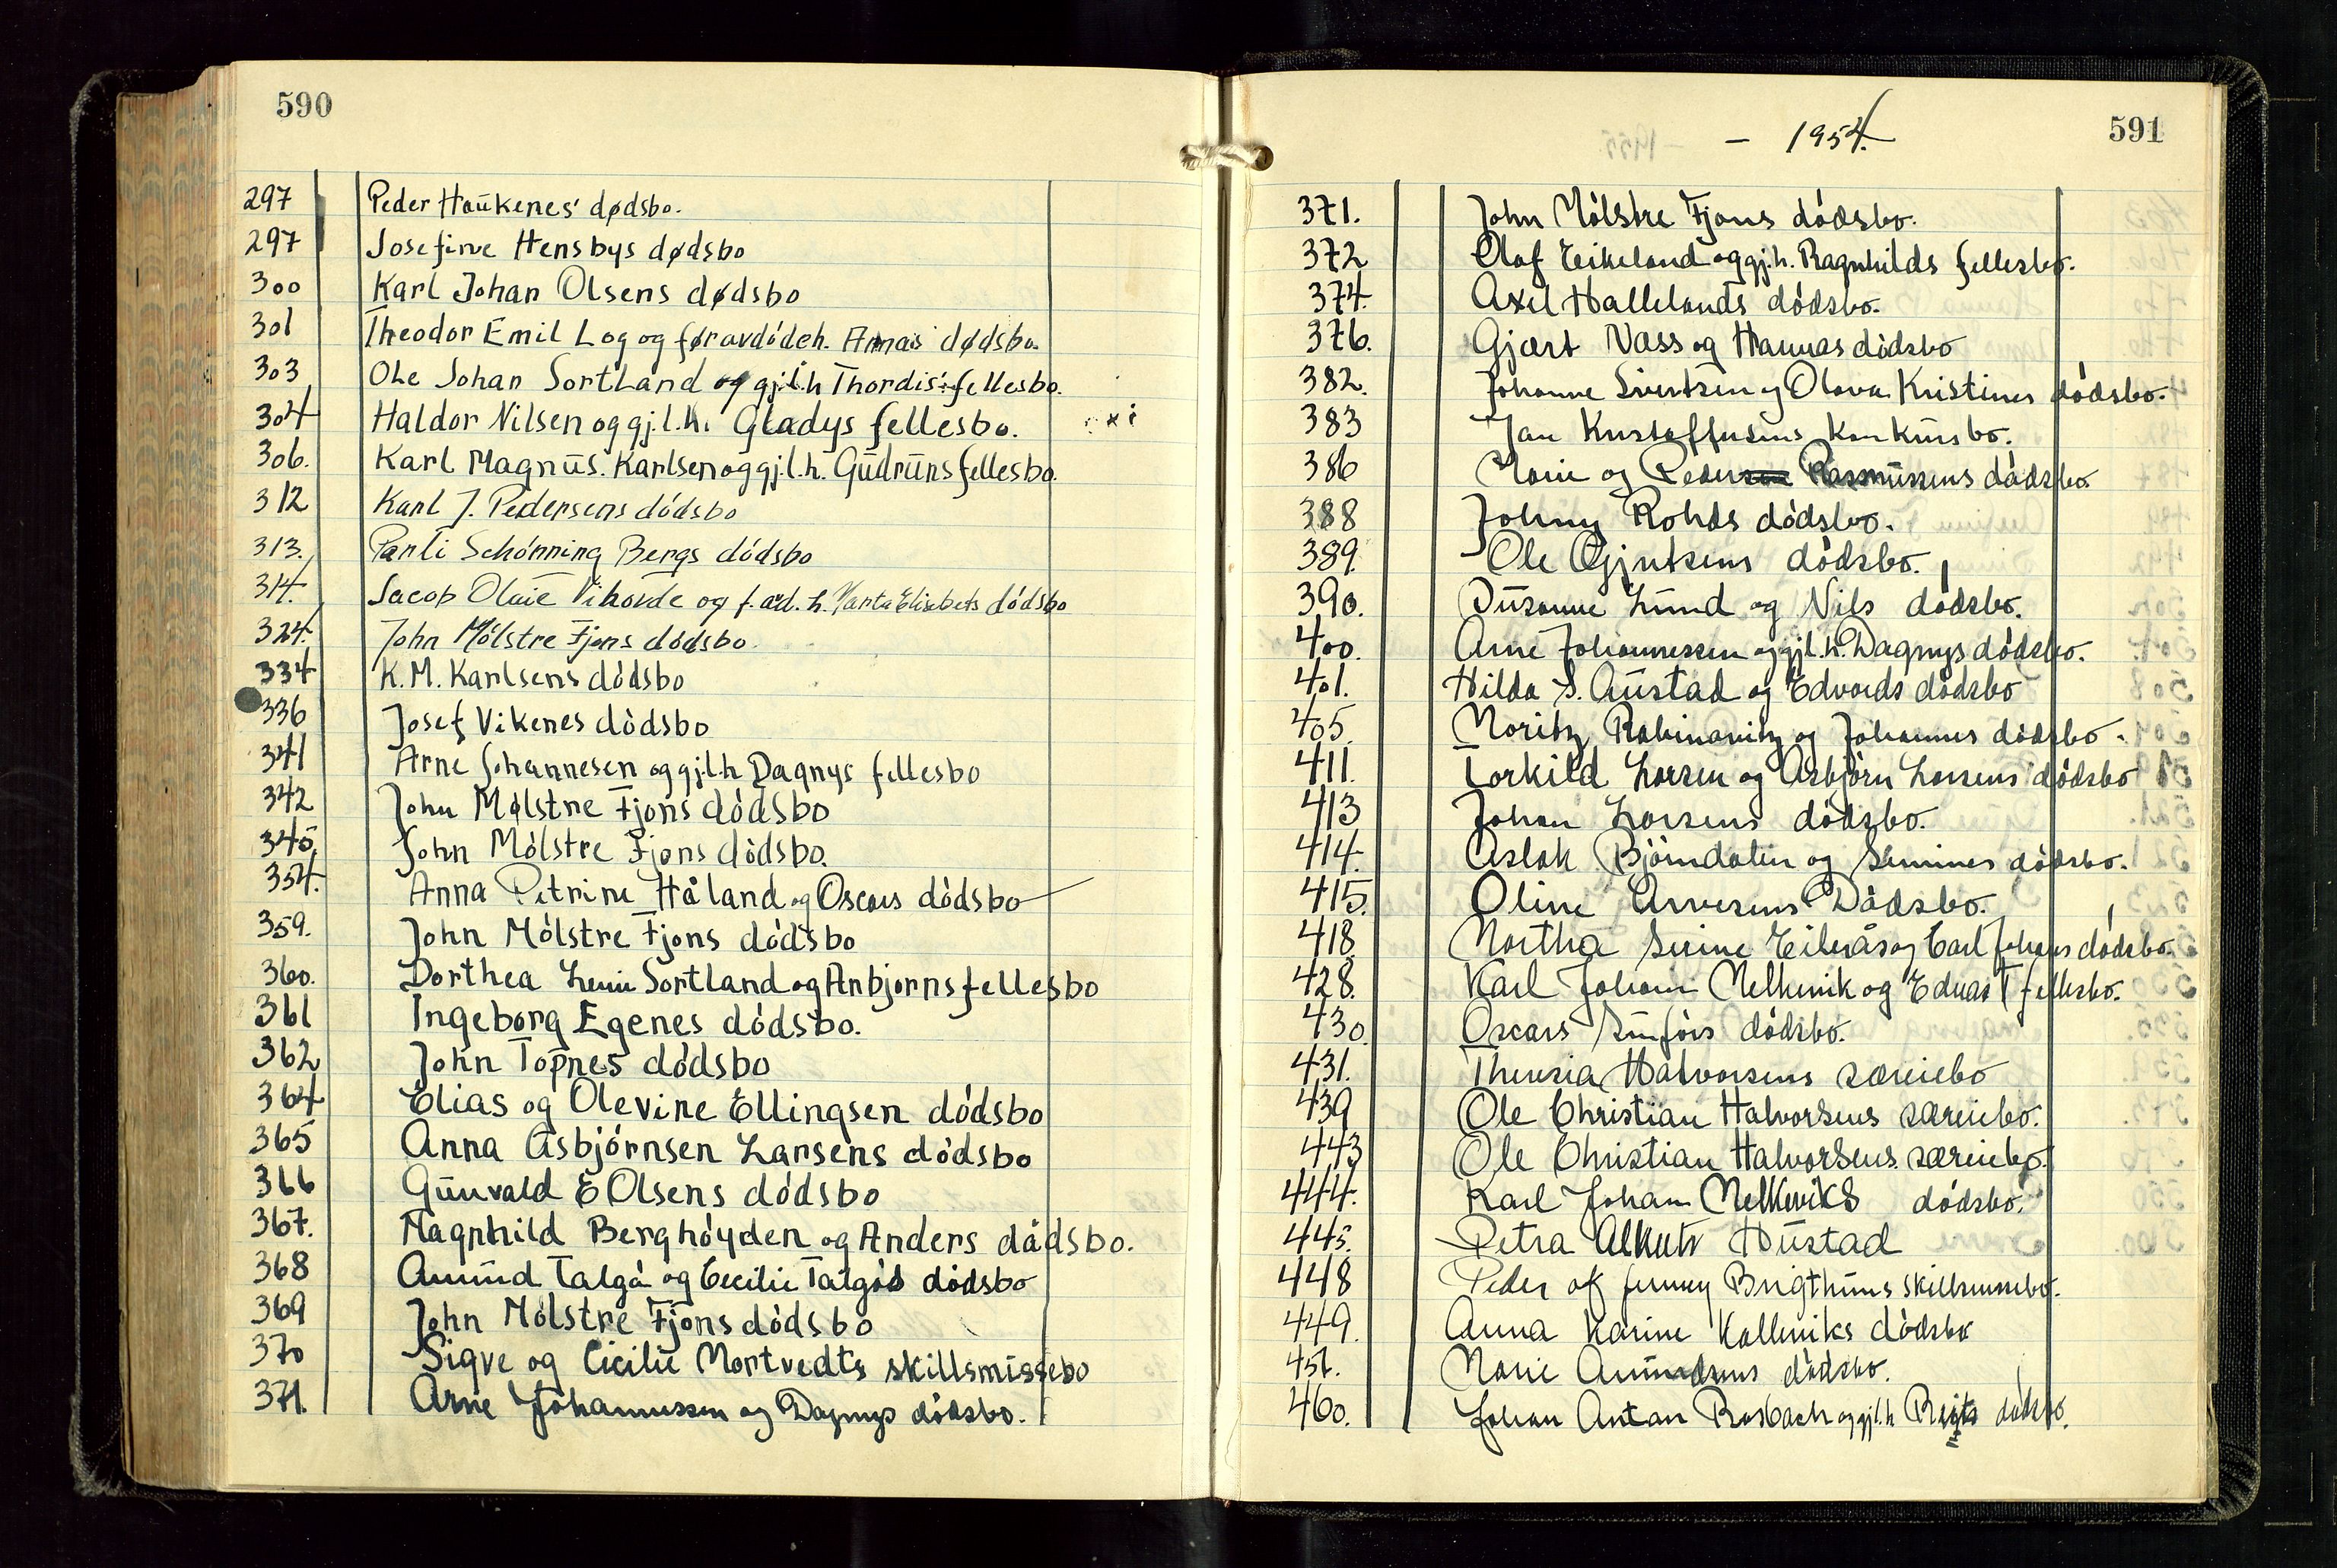 590
297 Peder Haukenes' dødsbo.
297 Josefine Hensbys dødsbo
300 Karl Johan Olsens dødsbo
301 Theodor Emil Log og føravdödeh. Annas dødsbo.
303 Ole Johan Sortland og gj.l.h Thordis' fellesbo.
304 Haldor Nilsen og gj.l.h. Gladys fellesbo.
306. Karl Magnus. Karlsen og gj.l.h. Gudruns fellesbo.
312 Karl J. Pedersens dódsbo
313. Parli Schónning Bergs dódsbo
314. Jacob Olaie Vihovde og f.avd.h. Marta Elisabets dódsbo
324. John Mólstre Fjons dódsbo.
334 K.M. Karlsens dódsbo
336 Josef Vikenes dódsbo
341 Arne Johannesen og gj.l.h Dagnys fellesbo
342 John Mólstre Fjons dódsbo
345. John Mólstre Fjons dódsbo.
354. Anna Petrine Håland og Oscars dódsbo
359. John Mólstre Fjons dódsbo
360. Dorthea Leni Sortland og Anbjorns fellesbo
361 Ingeborg Egenes dódsbo.
362 John Topnes dódsbo
364 Elias og Olevine Ellingsen dódsbo
365 Anna Asbjórnsen Larsens dódsbo
366 Gunvald E Olsens dódsbo
367. Magnhild Berghóyden og Anders dódsbo.
368 Amund Talgó og Cecilie Talgós dódsbo
369 John Mólstre Fjons dódsbo
370 Sigve og Cicilie Mortvedts skillsmissebo
371. Arne Johannessen og Dagnys dódsbo.
591
- 1954.
371. John Mólstre Fjons dódsbo.
372 Olaf Eikeland og gj.h. Ragnhilds fellesbo.
374. Axel Hallelands dódsbo.
376. Gjert Næss og Hannas dódsbo
382. Johanne Sivertsen og Olava Kristines dódsbo.
383 Jan Kristoffersens konkursbo.
386 Marie og Peder Rasmussens dódsbo.
388 Johny Rohds dódsbo.
389. Ole Gjertsens dódsbo.
390. Susanne Lund og Nils dódsbo.
400. Arne Johannessen og gj.l.h. Dagnys dódsbo.
401. Hilda S. Austad og Edvards dódsbo
405. Moritz Rabinowitz og Johannes dódsbo.
411. Torkild Larsen og Asbjórn Larsens dódsbo
413 Johan Larsens dódsbo.
414. Aslak Bjórndalen og Semines dódsbo.
415. Oline Arvesens Dódsbo.
418. Martha Serine Eikerås og Carl Johans dódsbo.
428. Karl Johan Melkevik og Ednas fellesbo.
430. Oscars Sunfórs dódsbo.
431. Theresia Halvorsens særeiebo
439 Ole Christian Halvorsens særeiebo.
443 Ole Christian Halvorsens særeiebo.
444. Karl Johan Melkeviks dódsbo.
445. Petra Hustad
448 Peder og Jenny Brigthuns skillsmissebo.
449. Anna Karine Kalleviks dódsbo
456. Marie Amundsens dódsbo.
460. Johan Anton Rosbach og gj.l.h dódsbo.